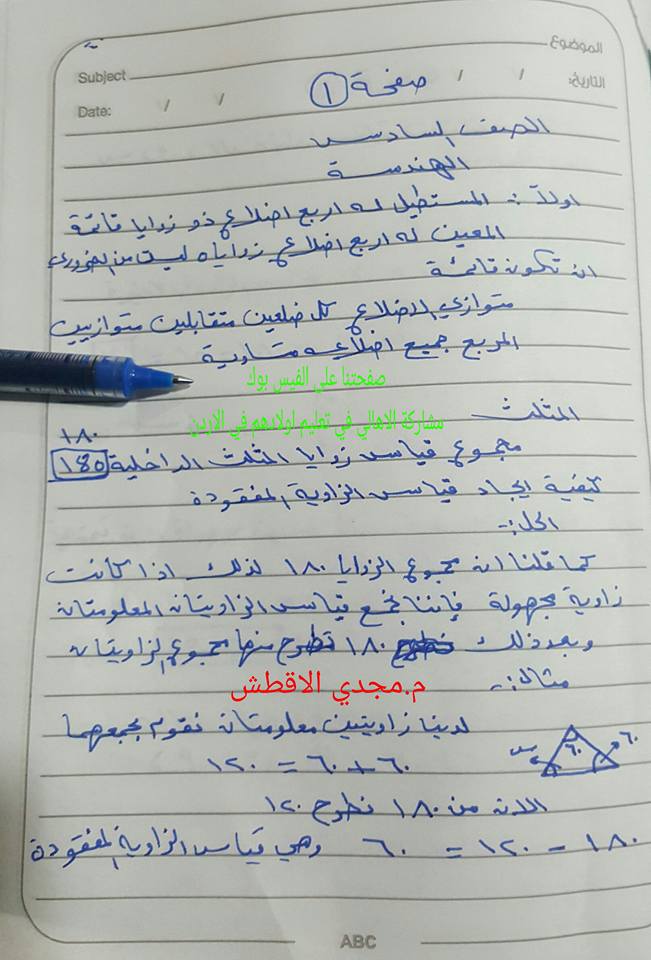 الموضوع
Subject
صفحة ١
التاريخ: / /
Date: / /
الصف السادس
الهندسة
اولاً :. المستطيل له اربع اضلاع ذو زوايا قائمة
المعين له اربع اضلاع زواياه ليست من الضروري
ان تكون قائمة
متوازي الاضلاع كل ضلعين متقابلين متوازيين
المربع جميع اضلاعه متساوية
صفحتنا على الفيس بوك
مشاركة الاهالي في تعليم اولادهم في الاردن
المثلث
١٨٠
مجموع قياس زوايا المثلث الداخلية 180
كيفية ايجاد قياس الزاوية المفقودة
الحل:-
كما قلنا ان مجموع الزوايا ١٨٠ لذلك اذا كانت
زاوية مجهولة فإننا نجمع قياس الزاويتان المعلومتان
وبعد ذلك ١٨٠ نطرح منها مجموع الزاويتان
مثال:-
م.مجدي الاقطش
لدينا زاويتين معلومتان نقوم بجمعهما
س ٦٠ ٦٠
٦٠ + ٦٠ = ١٢٠
الان من ١٨٠ نطرح ١٢٠
١٨٠ - ١٢٠ = ٦٠ وهي قياس الزاوية المفقودة
ABC